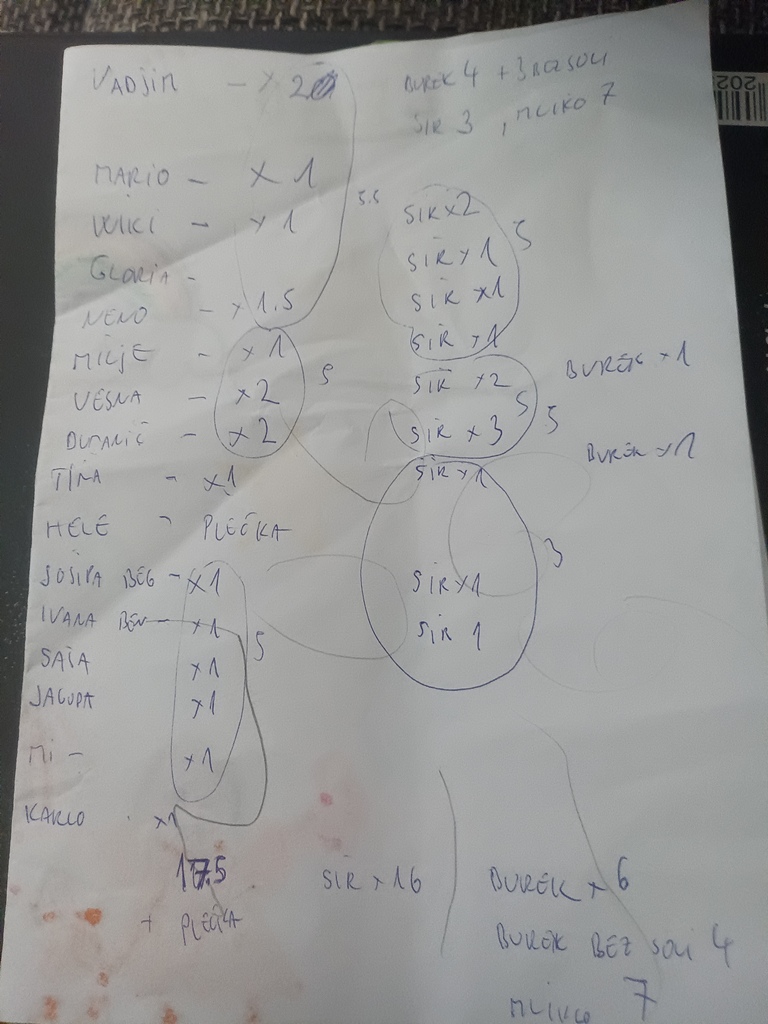 VADJIM - x 2 BUREK 4 + 3 BEZ SOLI
SIR 3, MLIKO 7
MARIO - x 1
VELIKI - x 1 5.5 SIR x 2 5
GLORIA - SIR x 1
NENO - x 1.5 SIR x 1
SIR x 1
MILJE - x 1 5
VESNA - x 2 SIR x 2 BUREK x 1
- x 2 SIR x 3 5 5
TINA - x 1 SIR x 1 BUREK x 1
HELE - PLEĆKA
JOSIPA BEG - x 1 SIR x 1 3
IVANA BEN - x 1 5 SIR 1
SAŠA x 1
JAGODA x 1
MI - x 1
KARLO x 1
17.5 SIR x 16 BUREK x 6
+ PLEĆKA BUREK BEZ SOLI 4
MLIKO 7
202